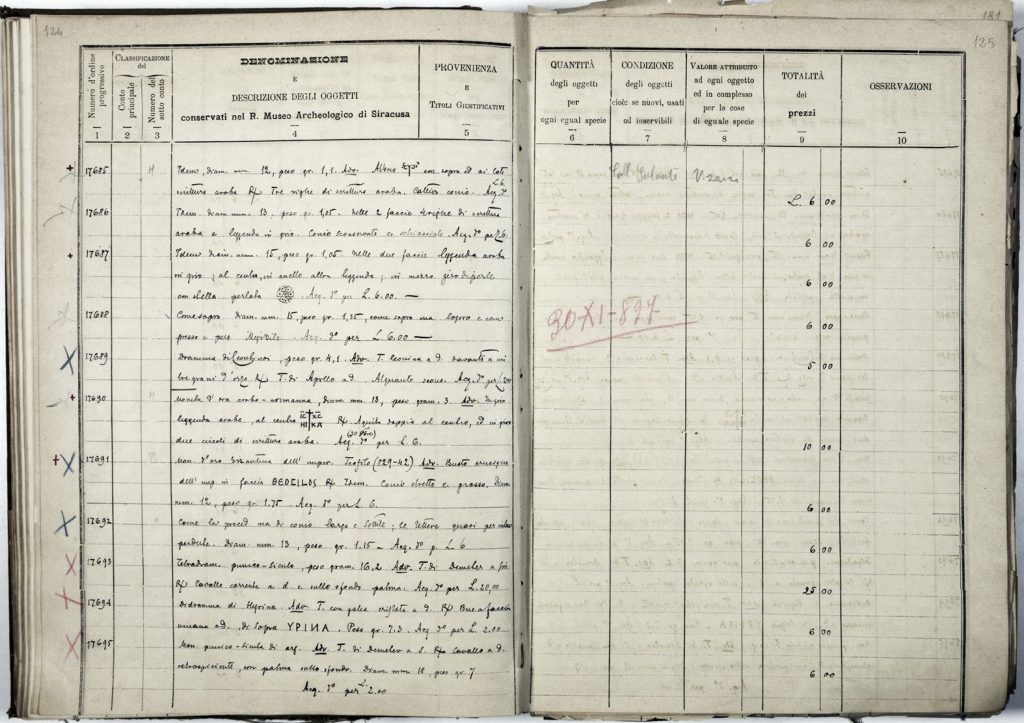 124
Numero d'ordine progressivo
CLASSIFICAZIONE del
Conto principale
Numero del sotto conto
DENOMINAZIONE
E
DESCRIZIONE DEGLI OGGETTI
conservati nel R. Museo Archeologico di Siracusa
PROVENIENZA
E
TITOLI GIUSTIFICATIVI
1 2 3 4 5
17685 Idem, diam. mm. 12, peso gr. 1,1. Adv. ai lati
scrittura araba Rx Tre righe di scrittura araba. Cattivo conio. Acq. L. 6
17686 Idem. diam. mm. 13, peso gr. 1,05. Nelle 2 faccie righe di scrittura
araba e leggenda in giro. Conio conservato Acq. per L. 6.
17687 Idem diam. mm. 15, peso gr. 1,05. Nelle due faccie leggenda araba
in giro; al centro, in anello altra leggenda; in mezzo giro di perle
con stella perlata Acq. per L. 6.00. —
17688 Come sopra diam. mm. 15, peso gr. 1,35, come sopra ma logoro e
Acq. per L. 6.00 —
17689 Dramma di Leontinoi, peso gr. 4,1. Adv. T. leonina a d. davanti a
tre grani d'orzo Rx T. di Apollo a d. Alquanto Acq. per L. 20
17690 M Moneta d'oro arabo-normanna, diam. mm. 13, peso gram. 3. Adv. In giro
leggenda araba, al centro IC XC NI KA Rx al centro, ed in giro
due circoli di scrittura araba. Acq. per L. 6.
17691 Mon. d'oro bizantina dell'imper. Teofilo (829-42) Adv. Busto
dell'imp. in faccia ΘEOFILOS Rx Idem. Conio stretto e grosso. Diam.
mm. 12, peso gr. 1.75. Acq. per L. 6.
17692 Come la preced. ma di conio largo e sottile; le lettere quasi per intero
perdute. Diam. mm. 13, peso gr. 1.15 – Acq. p. L. 6
17693 Tetradram. punico-siculo, peso gram. 16,2 Adv. T. di Demeter a sin.
Rx Cavallo corrente a d. e sullo sfondo palma. Acq. per L. 20,00
17694 Didramma di Hyrina. Adv. T. con galea crestata a d. Rx Bue a faccia
umana a d., di sopra YPINA. Peso gr. 7.3. Acq. per L. 2.00
17695 Mon. punico-sicula di arg. Adv. T. di Demeter a S. Rx Cavallo a d.
retrospiciente, con palma sullo sfondo. Diam. mm. 18, peso gr. 7
Acq. per L. 2.00
181
125
QUANTITÀ
degli oggetti
per
ogni egual specie
CONDIZIONE
degli oggetti
cioè: se nuovi, usati
od inservibili
VALORE ATTRIBUITO
ad ogni oggetto
ed in complesso
per le cose
di eguale specie
TOTALITÀ
dei
prezzi
OSSERVAZIONI
6 7 8 9 10
L. 6 00
6 00
6 00
30-XI-897
6 00
5 00
10 00
6 00
6 00
25 00
6 00
6 00